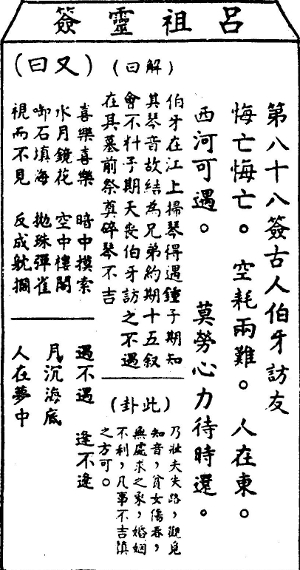 呂祖靈簽
第八十八簽古人伯牙訪友
悔亡悔亡。空耗兩難。人在東。
西河可遇。莫勞心力待時還。
(解曰)
伯牙在江上掃琴得遇鍾子期知
其琴音故結為兄弟約期十五叙
會不料子期夭喪伯牙訪之不遇
在其墓前祭奠碎琴不吉
(此卦)
乃壯夫失路,觀見
知音,貧女傷春,
無處求之象,婚姻
不利,凡事不吉慎
之方可。
(又曰)
喜樂喜樂 時中摸索
水月鏡花 空中樓閣
啣石填海 拋珠彈雀
視而不見 反成躭擱
遇不遇 逢不逢
月沉海底
人在夢中